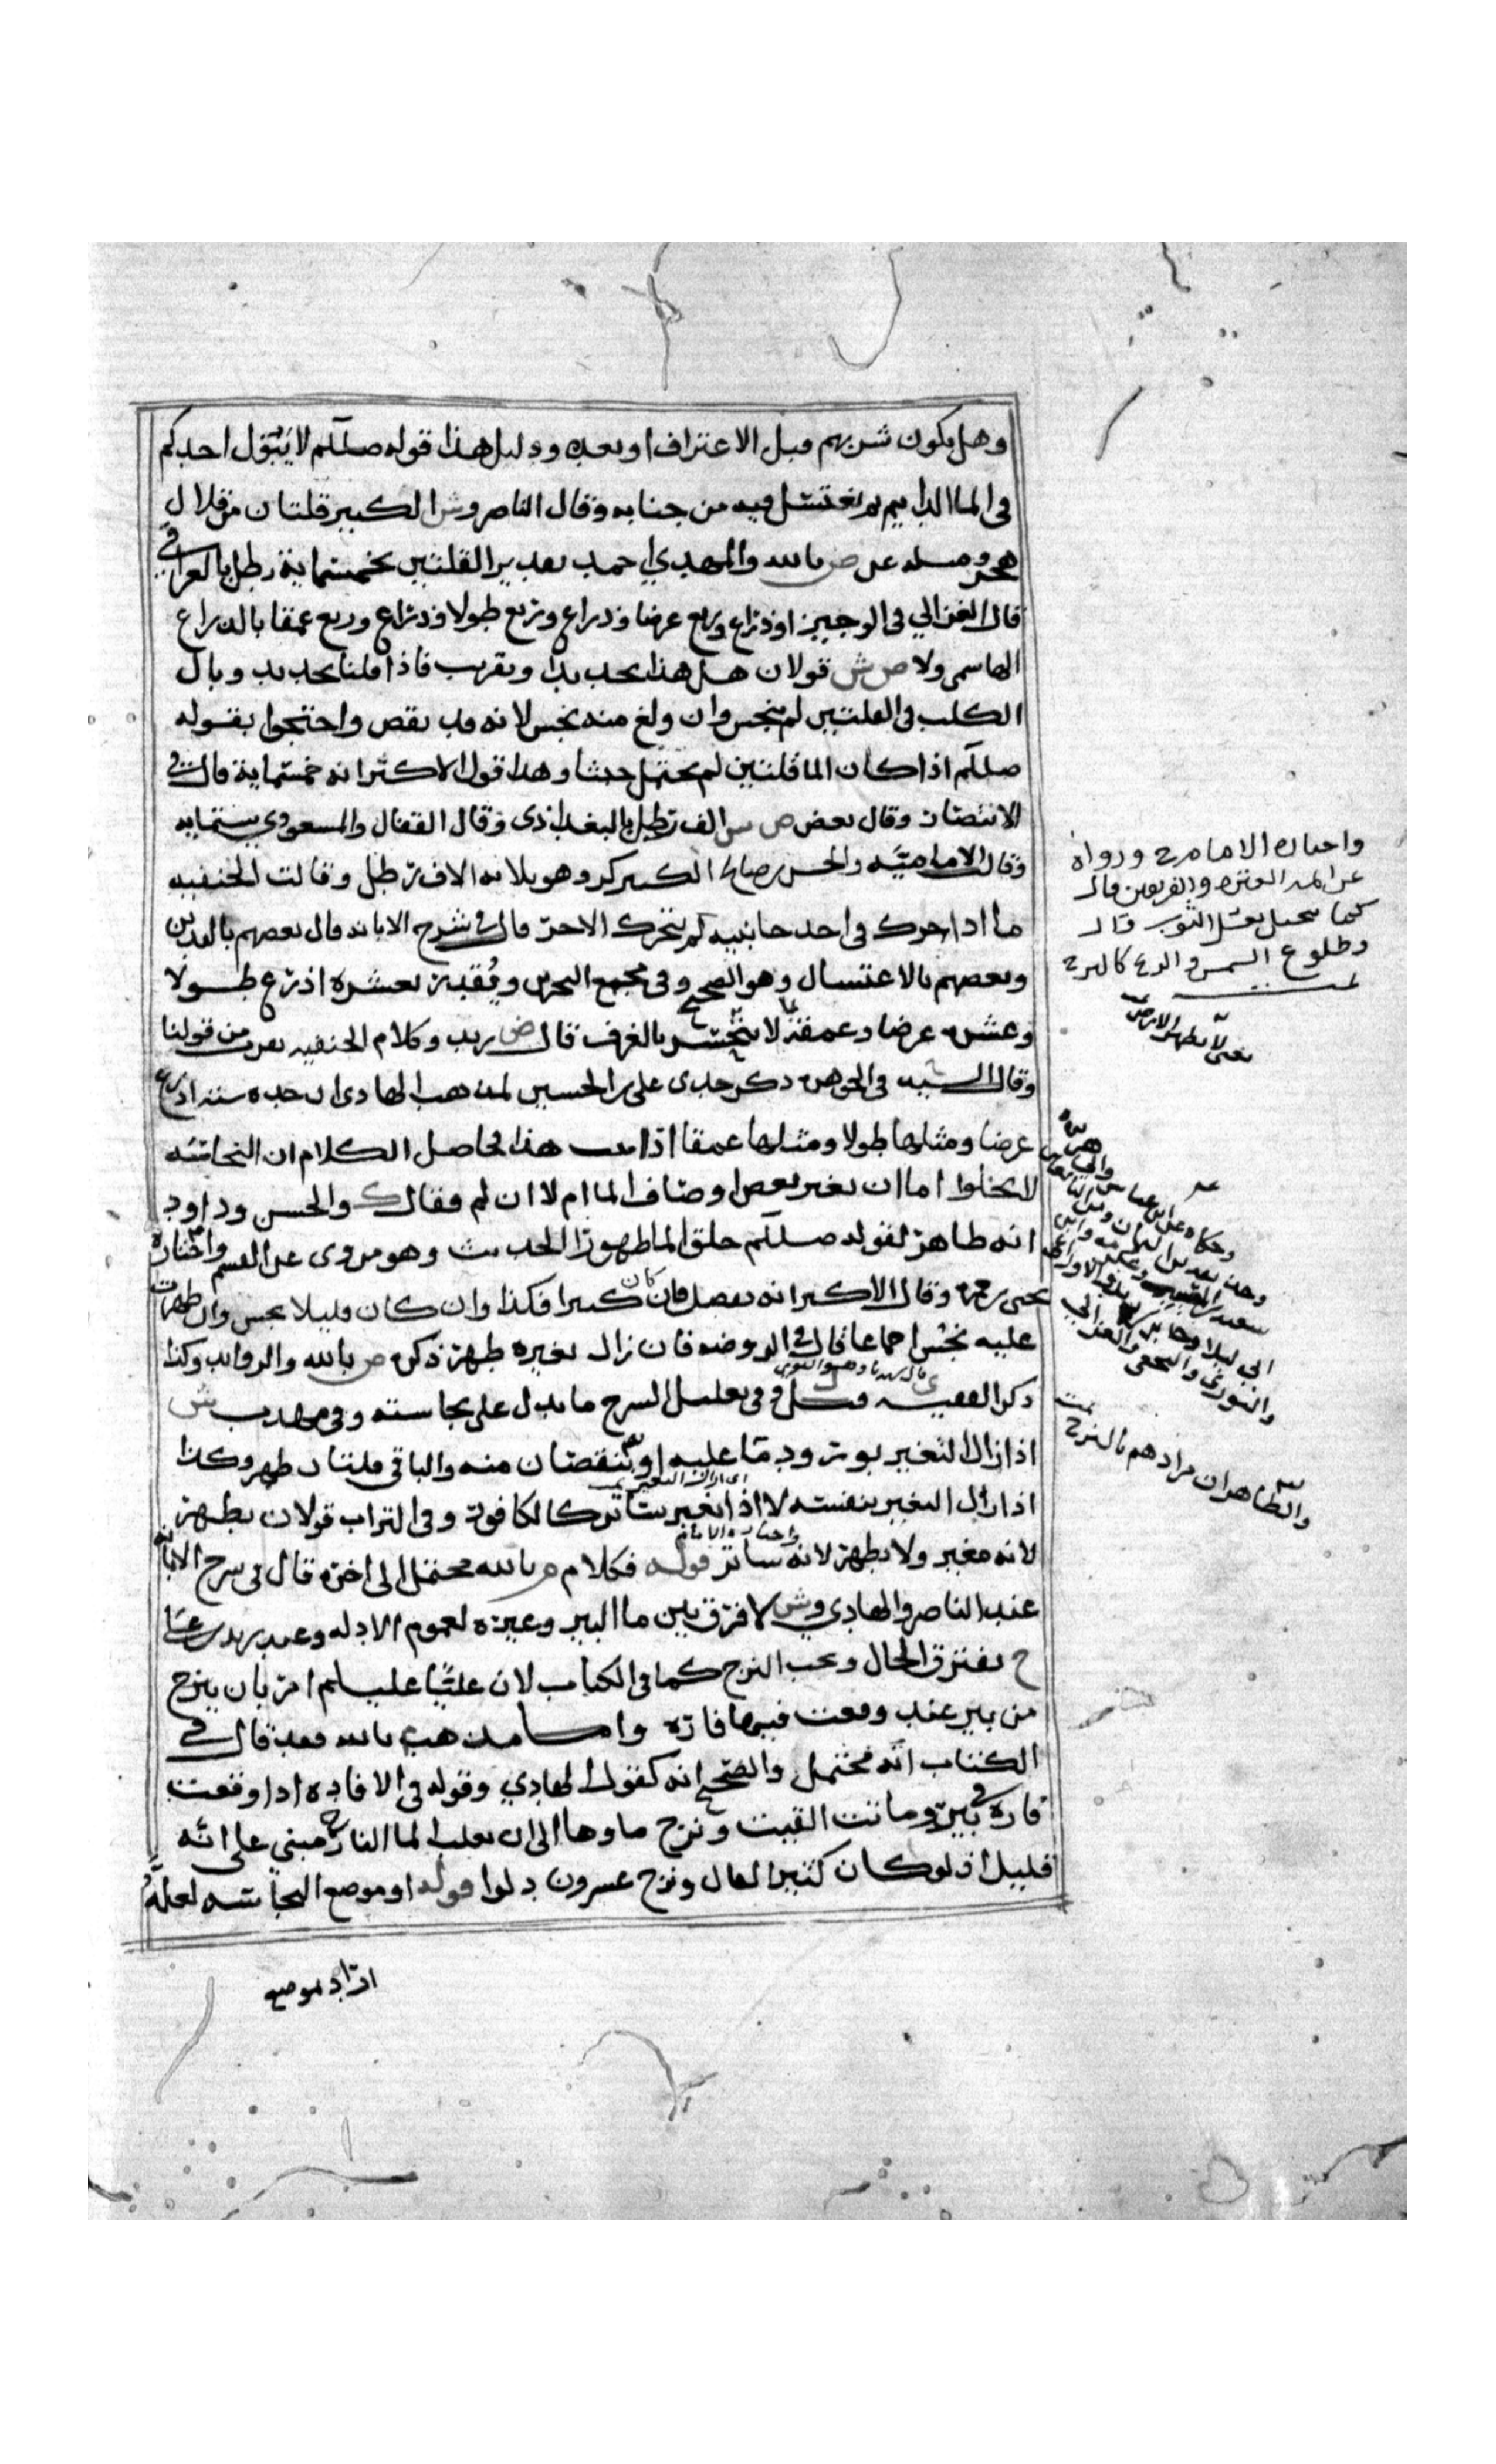 وهل يكون شربهم قبل الاعتراف او بعده ودليل هذا قوله صللم لا يبول احدكم
في الما الدايم ثم يغتسل فيه من جنابه وقال الناصر وش الكبير قلتان من قلال
هجر ومسله عن ض بالله والمهدي احمد تقدير القلتين بخمسماية رطل بالعراقي
قال الغزالي في الوجيز او ذراع وربع عرضا وذراع وربع طولا وذراع وربع عمقا بالذراع
الهاسمي ولا ص ش قولان هل هذا تحديدا وتقريب فاذا قلنا تحديد وبال
الكلب في القلتين لم ينجس وان ولغ منه نجس لانه قد نقص واحتجوا بقوله
صللم اذا كان الما قلتين لم يحتمل خبثا وهذا قول الاكثر انه خمسماية قال في
الانتصار وقال بعض ص ش الف رطل بالبغداذي وقال القفال والمسعودي ستمايه
وقالت الاماميه والحسن بن صالح الكسر كر وهو ثلاثه الاف رطل وقالت الحنفيه
ما اذا حرك في احد جانبيه لم يتحرك الاخر قال في شرح الابانه قال بعضهم باليدين
وبعضهم بالاغتسال وهو الصحيح وفي مجمع البحرين وتقديره بعشره اذرع طولا
وعشره عرضا وعمقه لا ينحسر بالغرف قال ض زيد وكلام الحنفيه يقرب من قولنا
وقال السيد في الجوهره ذكر جدي علي بن الحسين لمذهب الهادي ان حده سته اذرع
عرضا ومثلها طولا ومثلها عمقا اذا ثبت هذا فحاصل الكلام ان النجاسه
لا يخلوا اما ان تغير بعض اوصاف الما ام لا ان لم فقال ك والحسن وداود
انه طاهر لقوله صللم خلق الما طهورا الحديث وهو مروي عن القسم واختاره
يحيى بن حمزه وقال الاكثر انه يفصل فان كان كثيرا فكذا وان كان قليلا نجس وان ظهرت
عليه نجس اجماعا قال في الروضه فان زال تغيره طهر ذكره ص بالله والروايد وكذا
ذكر الفقيه ل وفي تعليل الشرح ما يدل على نجاسته وفي مهذب ش
اذا زال التغير بورود ما عليه او بنقصان منه والباقي قلتان طهر وكذا
اذا زال التغير بنفسه لا اذا تغير بساتر كالكافور وفي التراب قولان يطهر
لانه مغير ولا يطهر لانه ساتر قوله فكلام م بالله محتمل الى اخره قال في شرح الابانه
عند الناصر والهادي وش لا فرق بين ما البير وغيره لعموم الادله وعند زيد بن علي
ح يفترق الحال ويجب النزح كما في الكتاب لان عليا عليلم امر بان ينزح
من بير عند وقعت فيها فاره واما مذهب م بالله فقد قال في
الكتاب انه محتمل والصحيح انه كقول الهادي وقوله في الافاده اذا وقعت
فاره في بير وماتت القيت ونزح ماوها الى ان يغلب الما النازح مبني على انه
قليل اذ لو كان كثيرا لقال ونزح عشرون دلوا قوله او موضع النجاسه لعله
اراد موضع
واختاره الامام ح ورواه
عن ايمه العتره والفريقين قال
كما يحيل بغسل الثوب قال
وطلوع الشمس والريح كالنزح
تمت
يعني لا يطهر الارض
وحكاه عن ابن عباس وابي هريره
والنووي والنخعي والغزالي
والظاهر ان مرادهم بالنزح
تمت